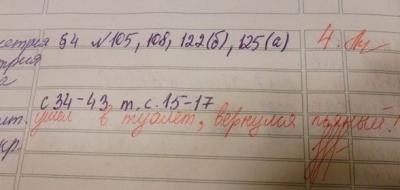 етрия §4 №105, 108, 122(б), 125(а) 4.
трия
а
с 34-43, т. с. 15-17
ит. ушёл в туалет, вернулся пьяный!
кр.